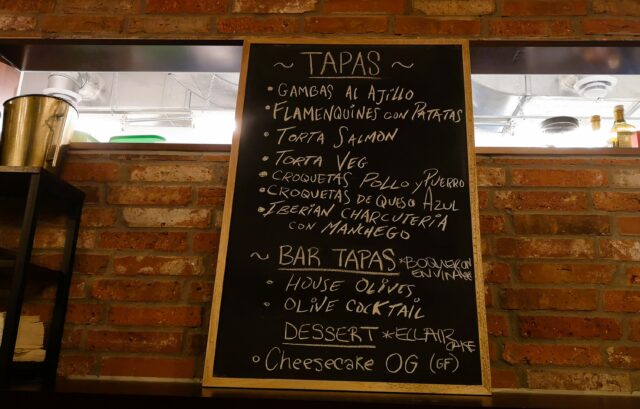 ~ TAPAS ~
• GAMBAS AL AJILLO
• FLAMENQUINES CON PATATAS
• TORTA SALMON
• TORTA VEG
• CROQUETAS POLLO y PUERRO
• CROQUETAS DE QUESO AZUL
• IBERIAN CHARCUTERIA
CON MANCHEGO
~ BAR TAPAS *BOQUERON
EN VINA
• HOUSE OLIVES
• OLIVE COCKTAIL
DESSERT
• CHEESECAKE OG (GF)